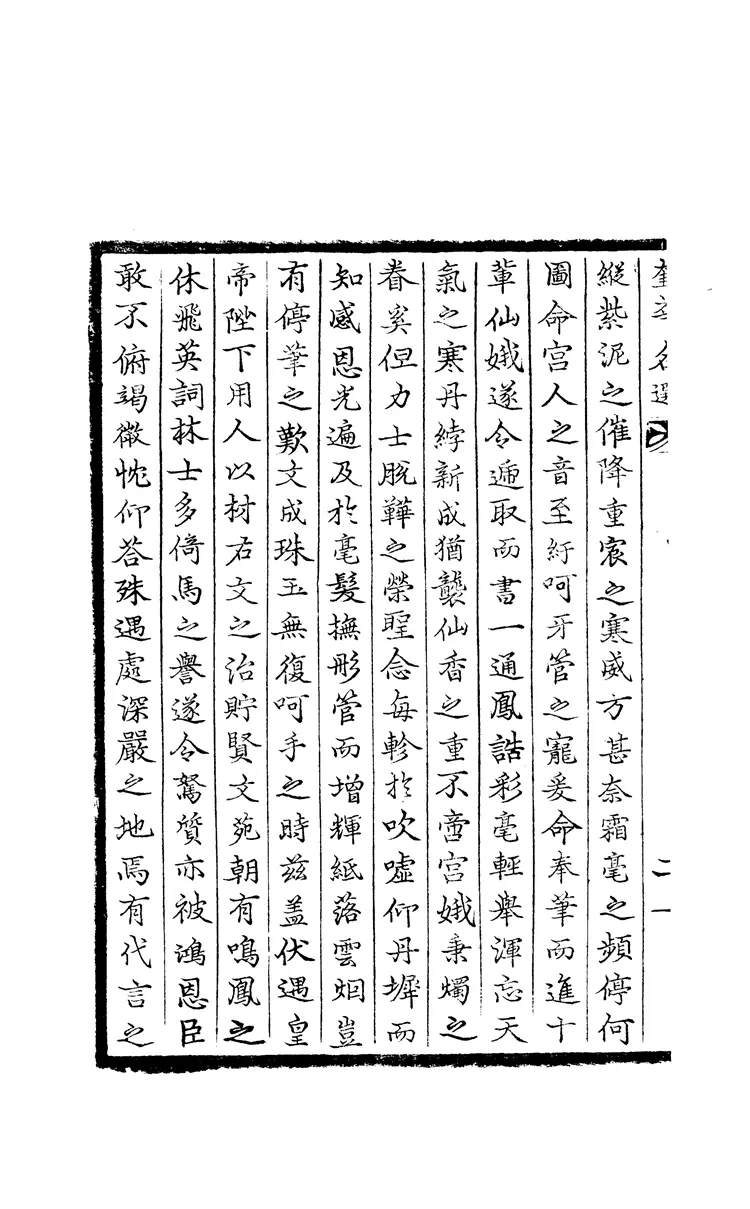 奎章名選 二一
縱紫泥之催降重宸之寒威方甚奈霜毫之頻停何
圖命宮人之音至紆呵牙管之寵爰命奉筆而進十
輩仙娥遂令遞取而書一通鳳誥彩毫輕舉渾忘天
氣之寒丹綍新成猶襲仙香之重不啻宮娥秉燭之
眷奚但力士脫鞾之榮聖念每軫於吹噓仰丹墀而
知感恩光遍及於毫髮撫彤管而增輝紙落雲烟豈
有停筆之歎文成珠玉無復呵手之時茲盖伏遇皇
帝陛下用人以材右文之治貯賢文苑朝有鳴鳳之
休飛英詞林士多倚馬之譽遂令駑質亦被鴻恩臣
敢不俯竭微忱仰荅殊遇處深嚴之地焉有代言之